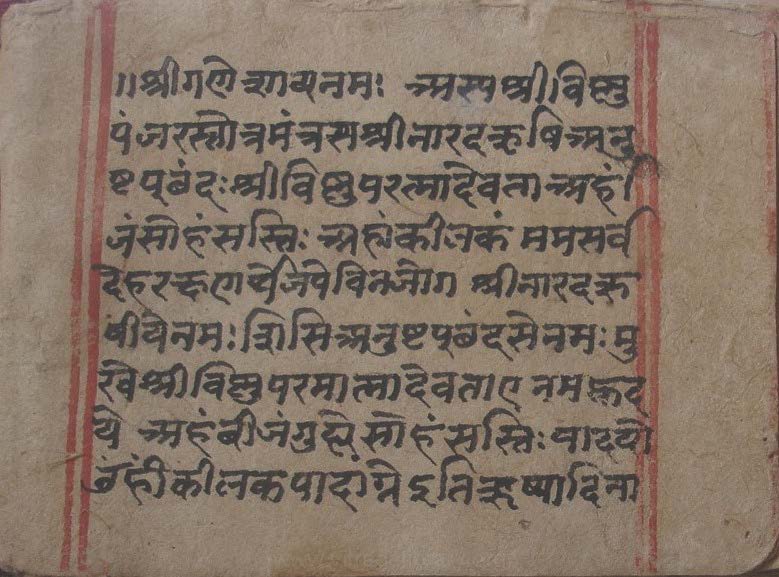 ॥श्रीगणेशायनमः अस्यश्रीविष्णु
पंजरस्तोत्रमंत्रस्यश्रीनारदऋषिअनु
ष्टपूछंदः श्रीविष्णुपरत्मादेवताअहं
जंसोहंसस्तिः अह्यंकीलकं ममसर्व
देहरक्षणार्थेजपेविनजोग श्रीनारदऋ
षीयेनमः शिसिअनुष्टपूछंदसेनमः मु
खेश्रीविष्णुपरमात्मादेवताएनमह्रद
ये अहंबीजंगुह्येसोहंसस्तिः पादयो
ॐहींकीलकपादांग्रेइतिऋष्यादिना